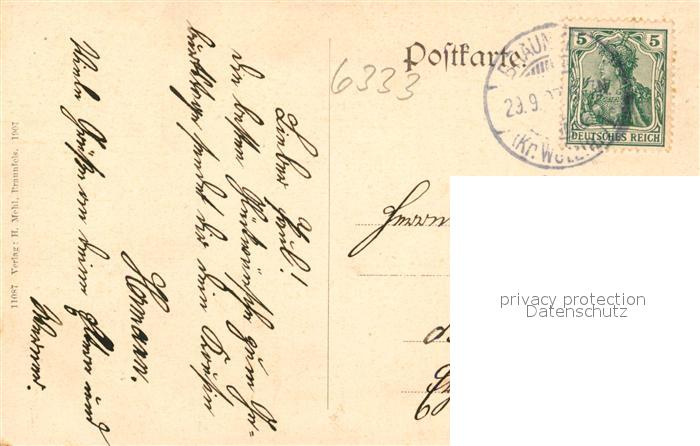 Postkarte.
6333
BRAUN
29.9.07
(Kr. WETZ
5 5
DEUTSCHES REICH
Lieber Paul!
Die besten Glückwünsche zum Ge-
burtstage sendet dir dein
Hermann.
Viele Grüße von deinen Eltern und
Werner.
11087 Verlag: H. Mehl, Braunfels. 1907
Herrn
privacy protection
Datenschutz